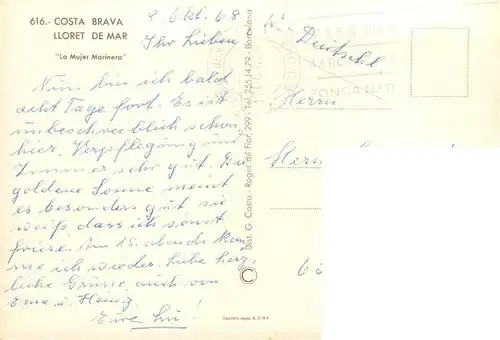 616.- COSTA BRAVA
LLORET DE MAR
"La Mujer Marinera"
8. Okt. 68
Ihr Lieben
Nun bin ich bald
acht Tage fort. Es ist
unbeschreiblich schön
hier. Verpflegung und
Zimmer sehr gut. Die
goldene Sonne meint
es besonders gut sie
weiß, dass ich sonst
friere. Am 15. abends kom-
me ich wieder. Liebe herz-
liche Grüsse auch von
Erna u. Heinz.
Eure
Dist. G. Costa - Roger de Flor, 299 - Tel. 255.14.79 - Barcelona
Herrn